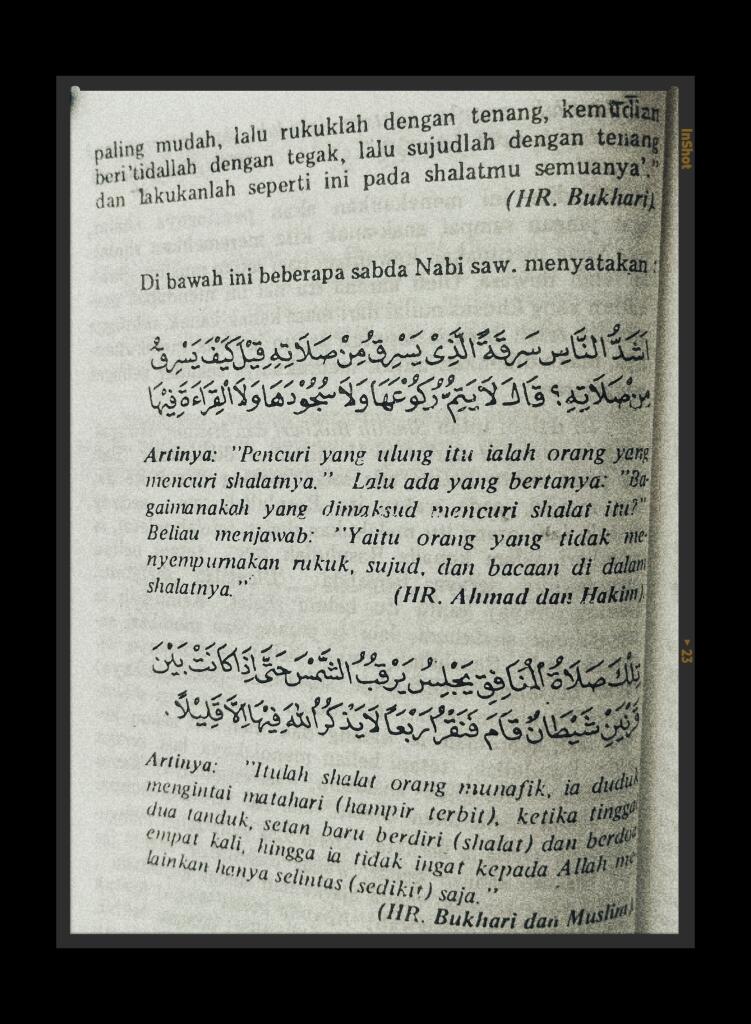 paling mudah, lalu rukuklah dengan tenang, kemudian
beri'tidallah dengan tegak, lalu sujudlah dengan tenang
dan lakukanlah seperti ini pada shalatmu semuanya'."
(HR. Bukhari).
Di bawah ini beberapa sabda Nabi saw. menyatakan :
اَشَدُّ النَّاسِ سَرِقَةً الَّذِىْ يَسْرِقُ مِنْ صَلَاتِهِ قِيْلَ كَيْفَ يَسْرِقُ
مِنْ صَلَاتِهِ ؟ قَالَ لَا يَتِمُّ رُكُوْعَهَا وَلَا سُجُوْدَهَا وَلَا الْقِرَاءَةَ فِيْهَا
Artinya: "Pencuri yang ulung itu ialah orang yang
mencuri shalatnya." Lalu ada yang bertanya: "Ba-
gaimanakah yang dimaksud mencuri shalat itu?"
Beliau menjawab: "Yaitu orang yang tidak me-
nyempurnakan rukuk, sujud, dan bacaan di dalam
shalatnya."
(HR. Ahmad dan Hakim).
تِلْكَ صَلَاةُ الْمُنَافِقِ يَجْلِسُ يَرْقُبُ الشَّمْسَ حَتَّى اِذَا كَانَتْ بَيْنَ
قَرْنَيْنِ شَيْطَانٌ قَامَ فَنَقَرَ اَرْبَعاً لَا يَذْكُرُ اللهَ فِيْهَا اِلَّا قَلِيْلاً .
Artinya: "Itulah shalat orang munafik, ia duduk
mengintai matahari (hampir terbit), ketika tinggal
dua tanduk, setan baru berdiri (shalat) dan berdoa
empat kali, hingga ia tidak ingat kepada Allah me-
lainkan hanya selintas (sedikit) saja."
(HR. Bukhari dan Muslim).
InShot
23